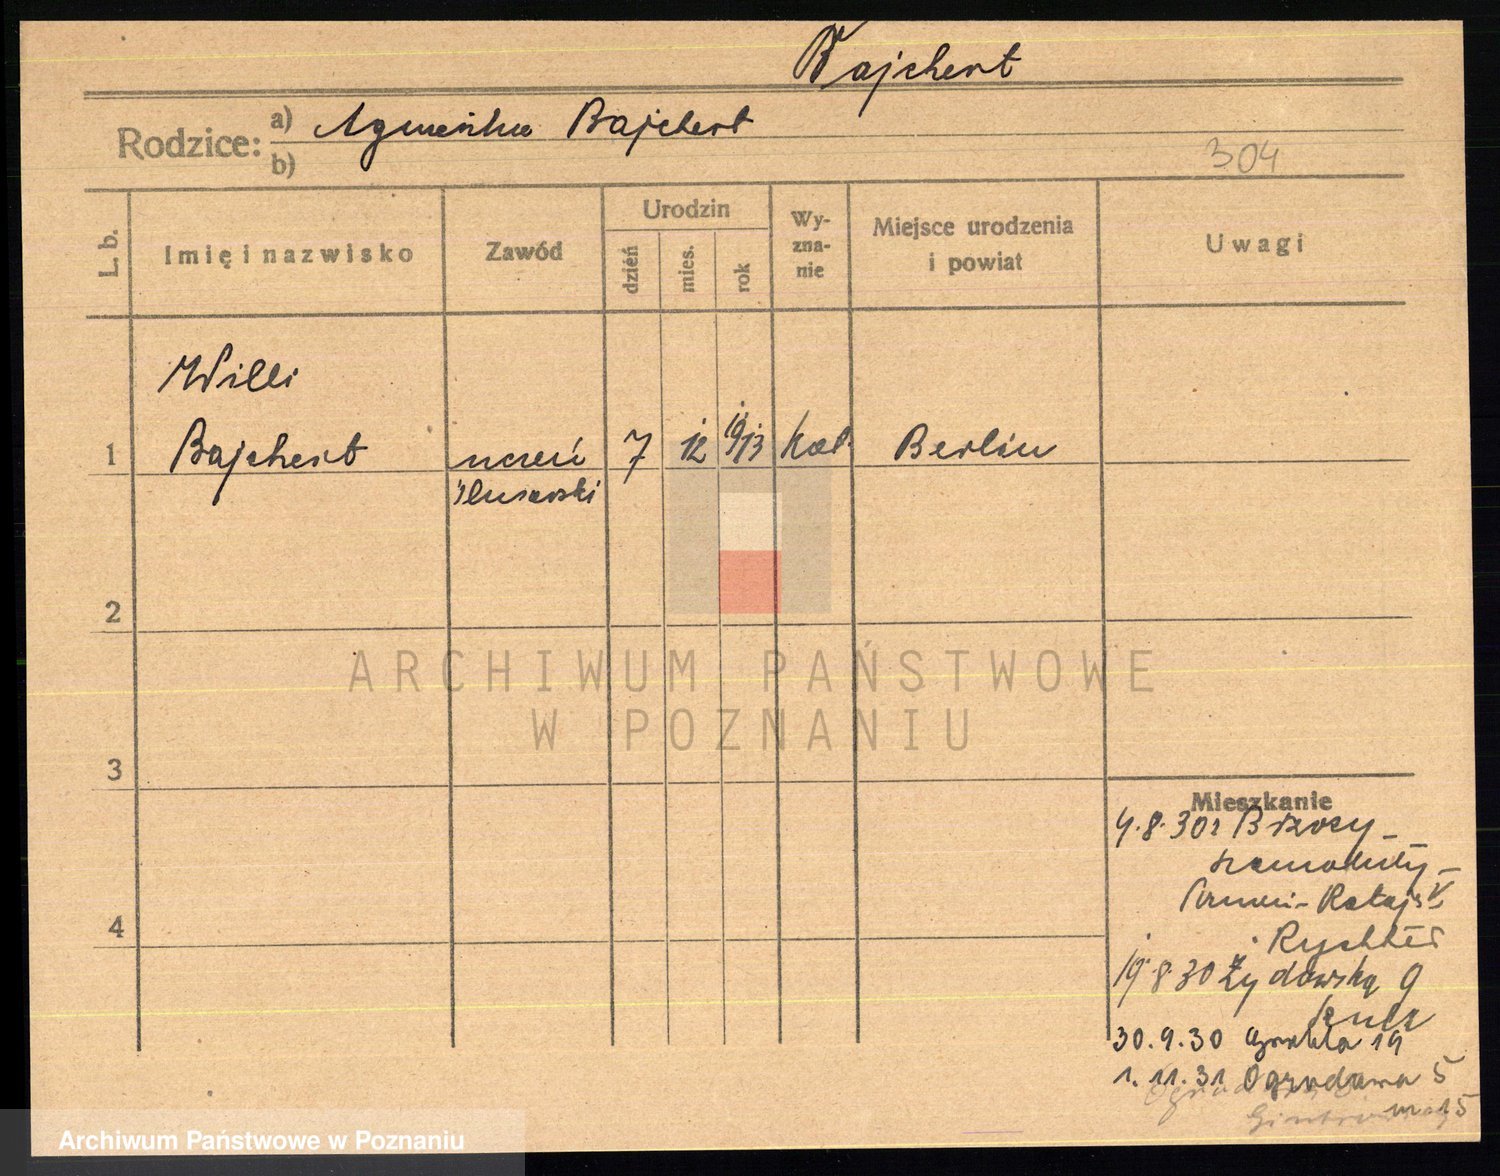 Bajchert
Rodzice: a) Agnieszka Bajchert
b)
304
L. b.
Imię i nazwisko
Zawód
Urodzin
dzień
mies.
rok
Wy-
zna-
nie
Miejsce urodzenia
i powiat
Uwagi
Willi
1 Bajchert uczeń 7 12 1913 kat. Berlin
ślusarski
2
3
4
Mieszkanie
4.8.30 z Brzozy-
Szamotuły-
Rataj
Rychter
19.8.30 Żydowska 9
30.9.30 19
1.11.31 Ogrodowa 5
m 15
ARCHIWUM PAŃSTWOWE
W POZNANIU
Archiwum Państwowe w Poznaniu